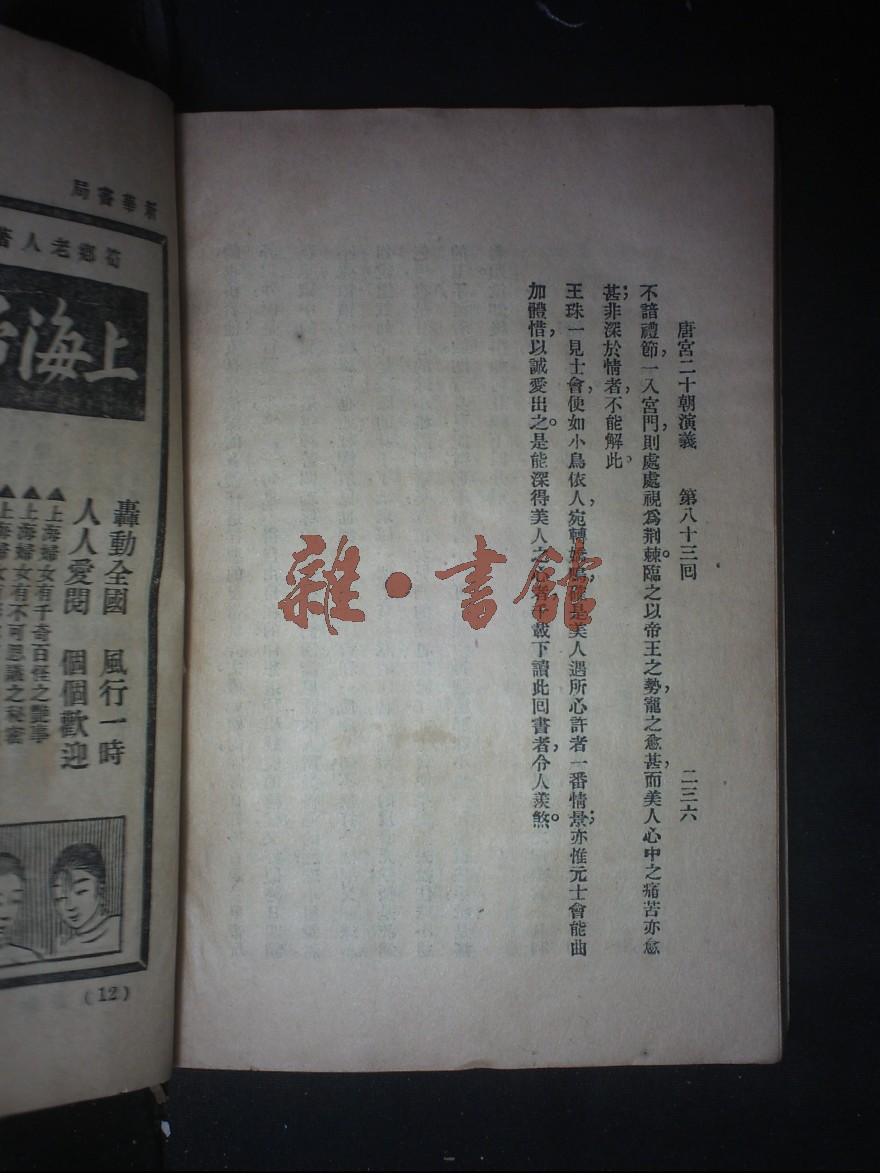 唐宮二十朝演義 第八十三回 二三六
不諳禮節，一入宮門，則處處視爲荆棘。臨之以帝王之勢，寵之愈甚，而美人心中之痛苦亦愈
甚；非深於情者，不能解此。
王珠一見士會，便如小鳥依人，宛轉嬌 是美人遇所心許者一番情景；亦惟元士會能曲
加體惜，以誠愛出之。是能深得美人之心者，千載下讀此回書者，令人羨煞。
雜·書館
新華書局
老人著
上海
轟動全國 風行一時
人人愛閱 個個歡迎
▲上海婦女有千奇百怪之艷事
▲上海婦女有不可思議之秘密
▲上海婦女
(12)